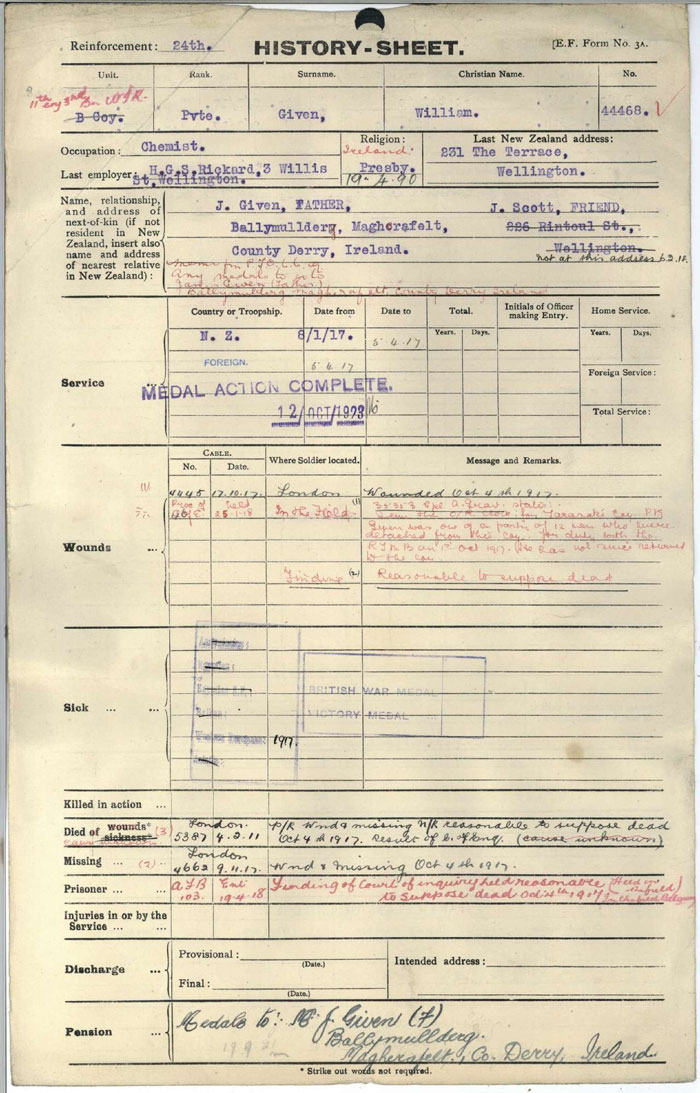 Reinforcement: 24th.
HISTORY-SHEET.
[E.F. Form No. 3A.
Unit. Rank. Surname. Christian Name. No.
11th Coy 3rd Bn
B Coy. Pvte. Given, William. 44468.
Occupation: Chemist.
Religion: Ireland. Presby. 19-4-90
Last New Zealand address:
231 The Terrace,
Wellington.
Last employer: H.G.S.Rickard,3 Willis
St,Wellington.
Name, relationship, and address of next-of-kin (if not resident in New Zealand, insert also name and address of nearest relative in New Zealand):
J. Given, FATHER,
Ballymullderg, Maghcrafelt,
County Derry, Ireland.
J. Scott, FRIEND,
226 Rintoul St.,
Wellington.
not at this address
Any medals to go to
James Given (Father)
Ballymulderg Magherafelt County Derry Ireland
Service ...
Country or Troopship. Date from Date to Total. Initials of Officer making Entry. Home Service.
Years. Days. Years. Days.
N. Z. 8/1/17. 5.4.17
FOREIGN. 5.4.17
Foreign Service:
Total Service:
MEDAL ACTION COMPLETE.
12/OCT/1923
Wounds ...
CABLE.
No. Date. Where Soldier located. Message and Remarks.
(1) 4445 17.10.17. London Wounded Oct 4th 1917.
Field
25-1-18 In the Field (1)
Given was one of a party of 12 men who were
detached from this Coy. for duty with the
on 1st Oct 1917. He has not since returned
to the Coy
Finding (2) Reasonable to suppose dead
Sick ... ...
BRITISH WAR MEDAL
VICTORY MEDAL
1917.
Killed in action ...
Died of wounds* sickness* (3)
London
5387 4.2.11 P/R Wnd & missing N/R reasonable to suppose dead
Oct 4th 1917. Result of C. of Enq. (cause unknown)
Missing ... (2)
London
4662 9.11.17. Wnd & Missing Oct 4th 1917.
Prisoner ...
AFB 103. 19-4-18 Finding of Court of inquiry held reasonable (Held in the field)
to suppose dead Oct 4th 1917 In the field Belgium
Injuries in or by the Service ... ...
Discharge ...
Provisional:
(Date.)
Final:
(Date.)
Intended address:
Pension ...
Medals to:- Mr J. Given (F)
Ballymullderg.
Magherafelt, Co. Derry, Ireland.
* Strike out words not required.